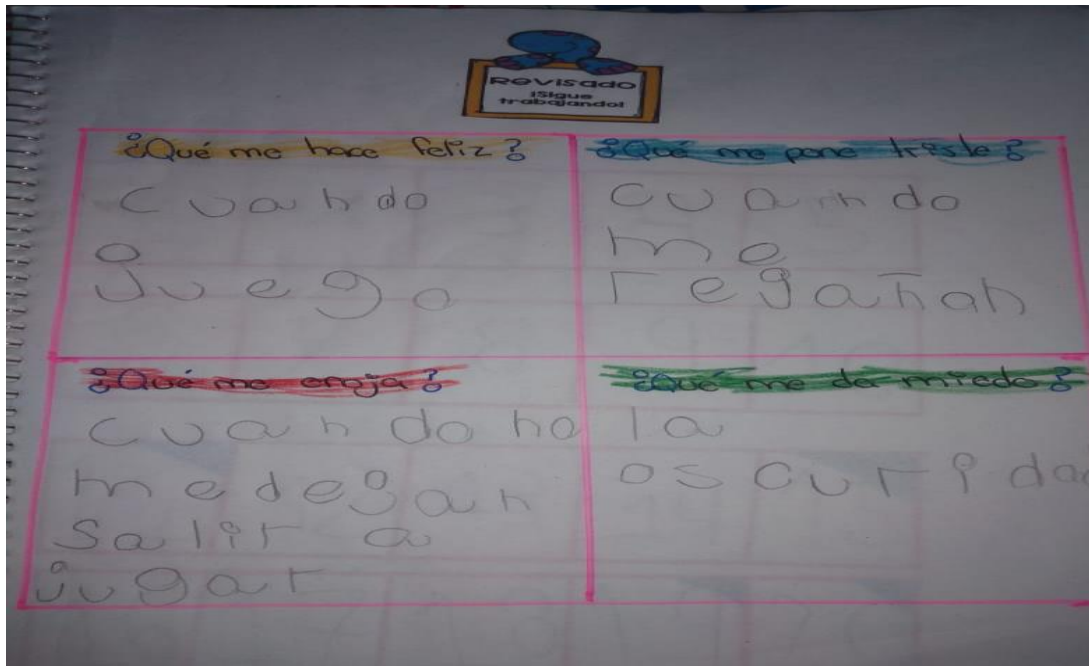 Revisado
¡Sigue
trabajando!
¿Qué me hace feliz?
Cuando
juego
¿Qué me pone triste?
Cuando
me
regañan
¿Qué me enoja?
Cuando no
me dejan
salir a
jugar
¿Qué me da miedo?
la
oscurida